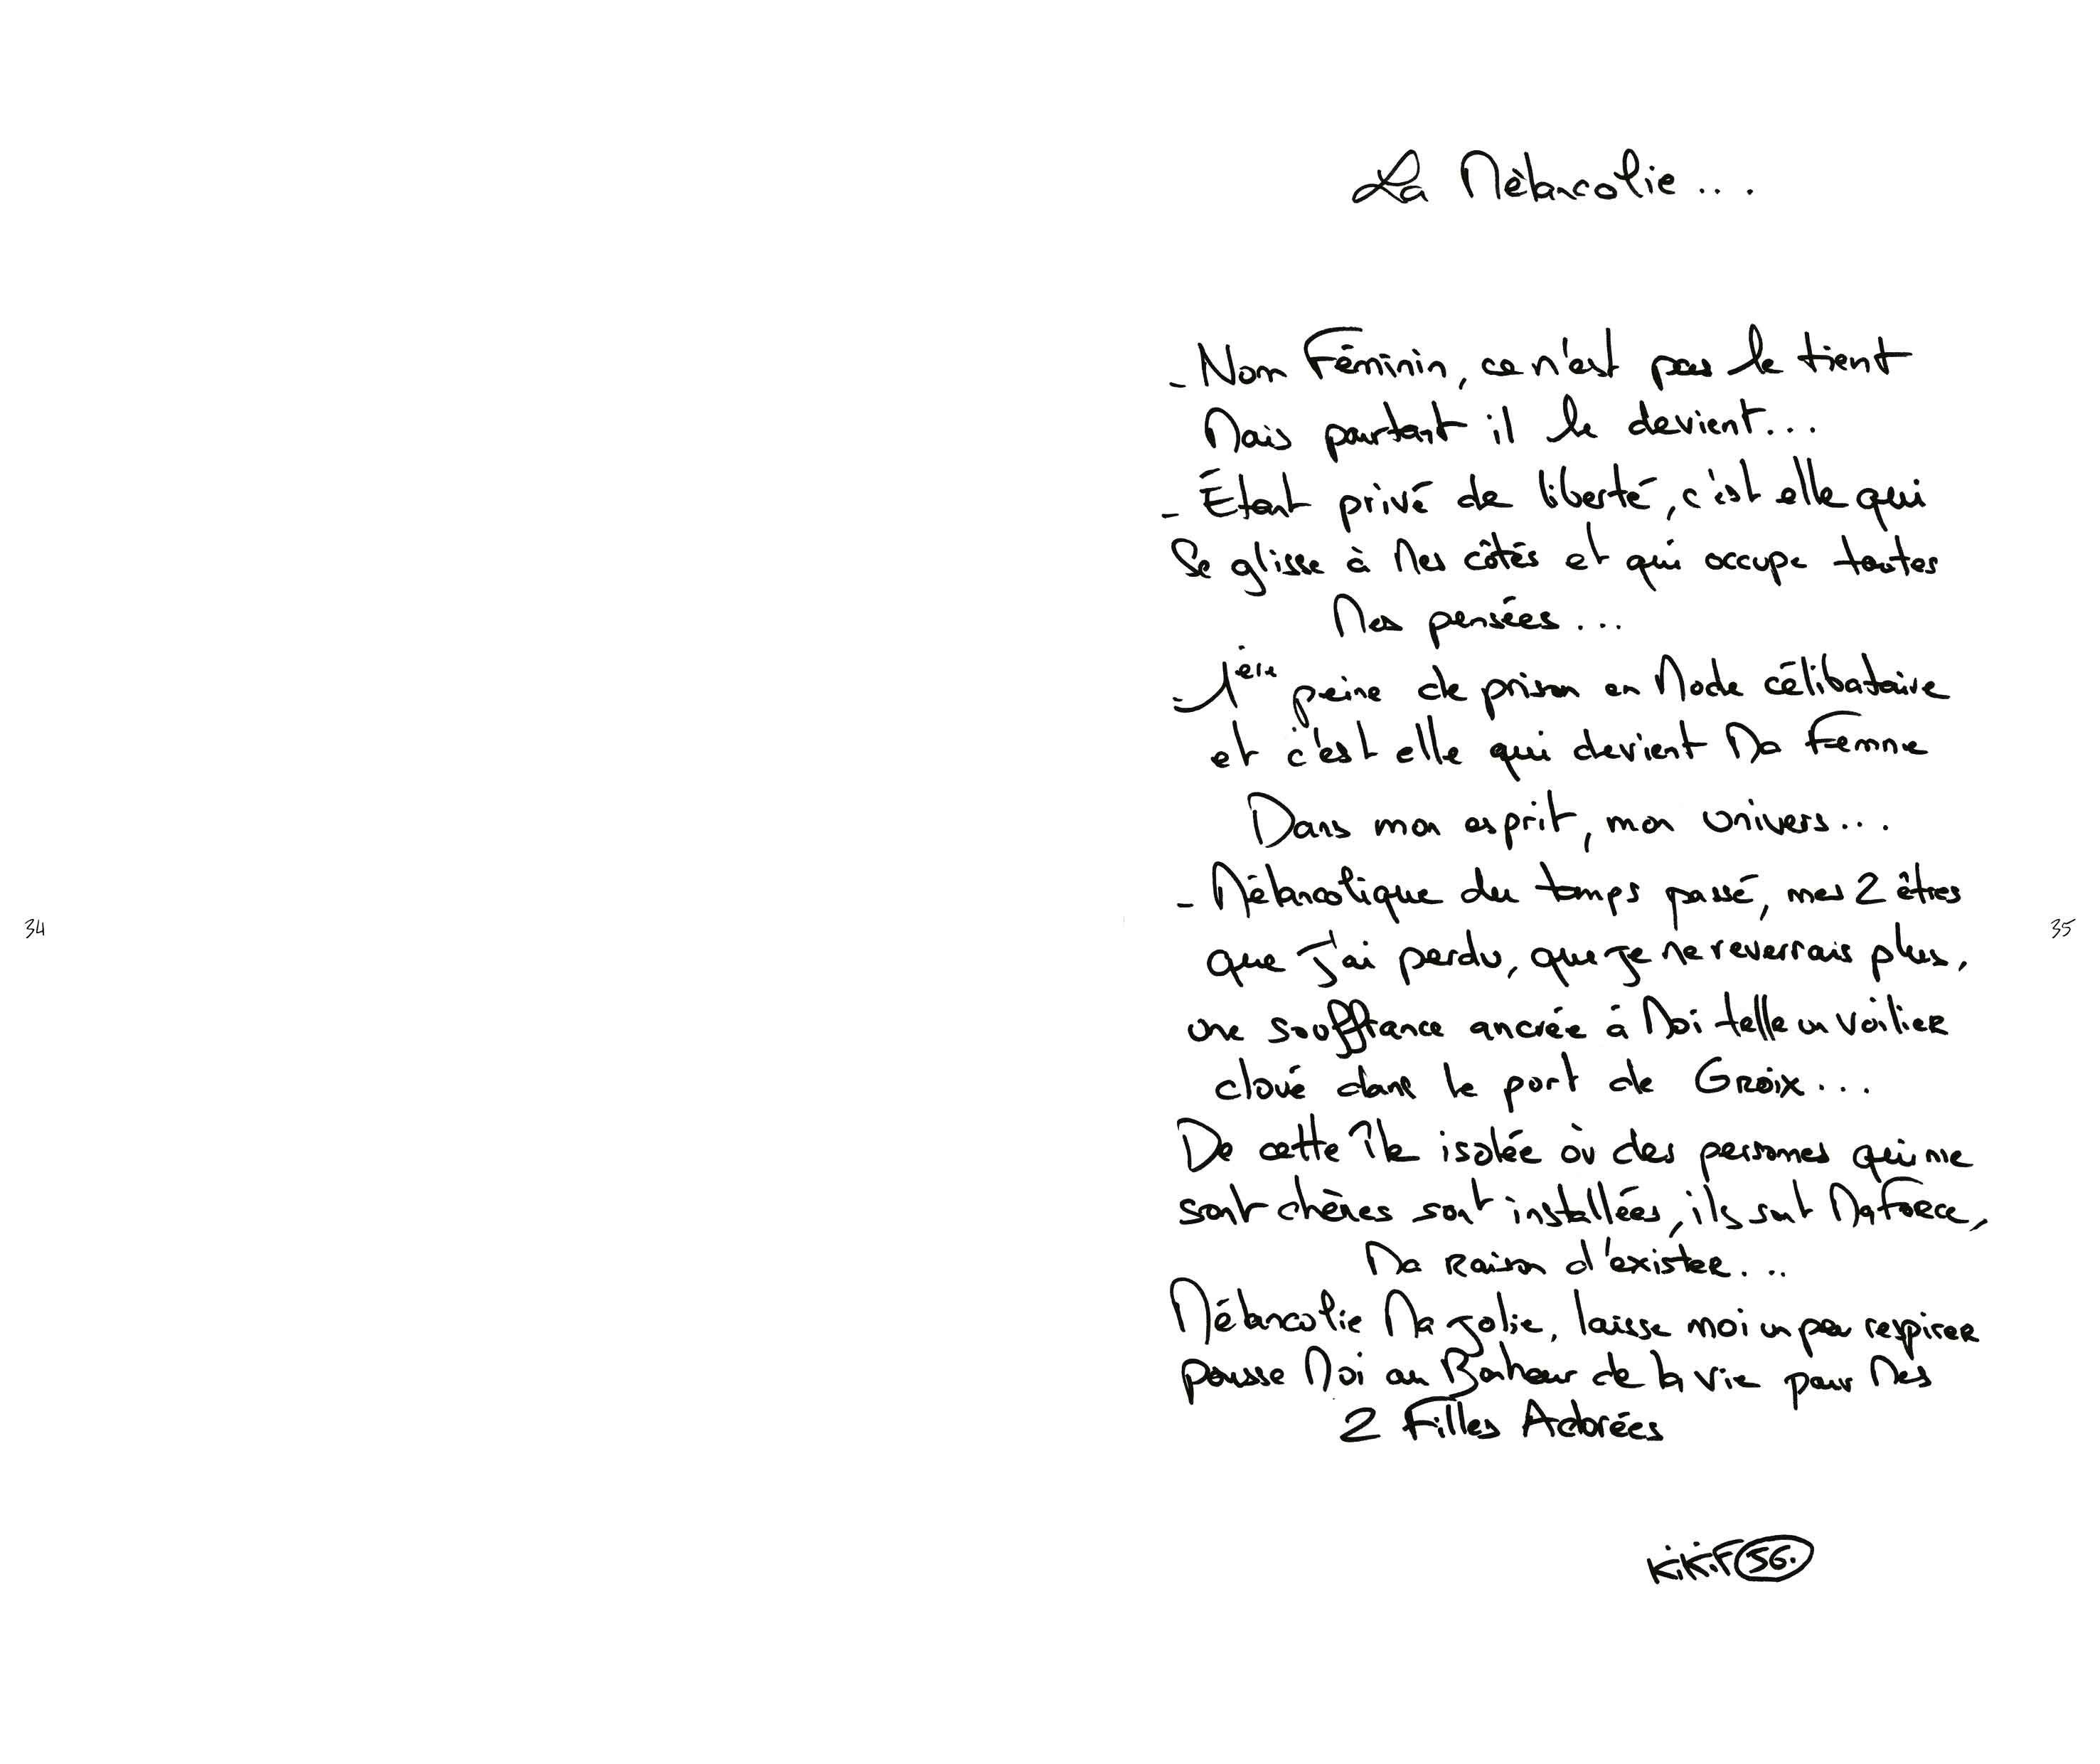 La Mélancolie...
- Nom Féminin, ce n'est pas le tient
Mais pourtant il le devient...
- Étant privé de liberté, c'est elle qui
Se glisse à Mes côtés et qui occupe toutes
Mes pensées...
- 1ère peine de prison en Mode célibataire
et c'est elle qui devient Ma Femme
Dans mon esprit, mon univers...
- Mélancolique du temps passé, mes 2 êtres
que J'ai perdu, que Je ne reverrais plus,
une souffrance ancrée à Moi telle un voilier
cloué dans le port de Groix...
De cette île isolée où des personnes qui me
sont chères sont installées, ils sont Ma Force,
Ma Raison d'exister...
Mélancolie Ma Jolie, laisse moi un peu respirer
pousse Moi au Bonheur de la vie pour Mes
2 Filles Adorées
34
35
KiKi.F 56.